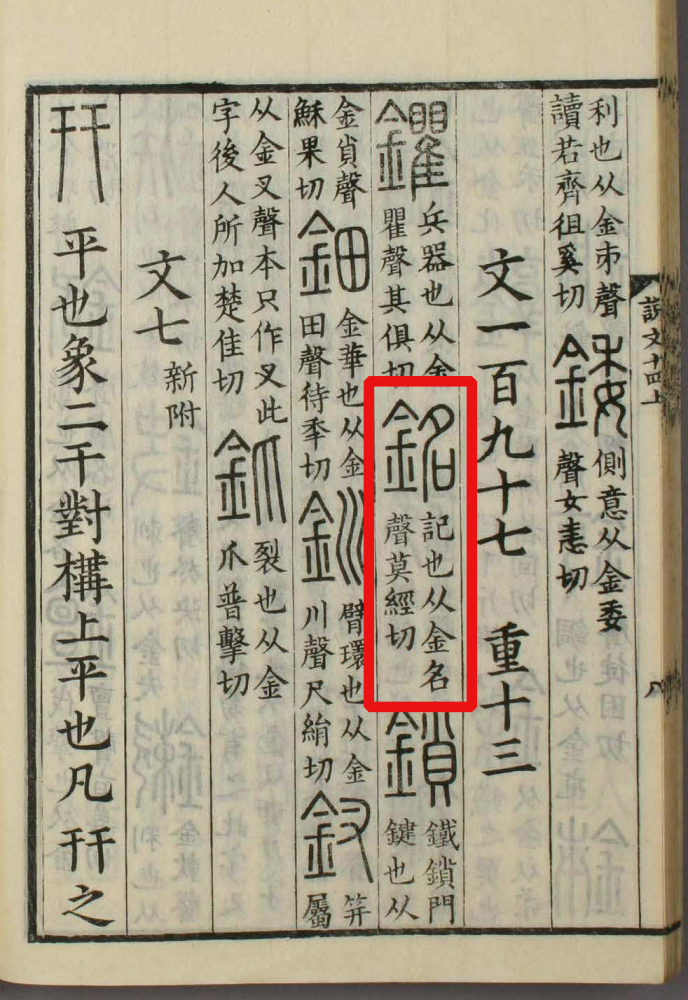 說文十四上
八
利也从金𠂔聲
讀若齊徂奚切
錗
側意从金委
聲女恚切
文一百九十七 重十三
鑺
兵器也从金
瞿聲其俱切
銘
記也从金名
聲莫經切
鎖
鐵鎖門
鍵也从
金𧴪聲
穌果切
鈿
金華也从金
田聲待秊切
釧
臂環也从金
川聲尺絹切
釵
笄
屬
从金叉聲本只作叉此
字後人所加楚佳切
釽
裂也从金
爪普擊切
文七 新附
幵 平也象二干對構上平也凡幵之